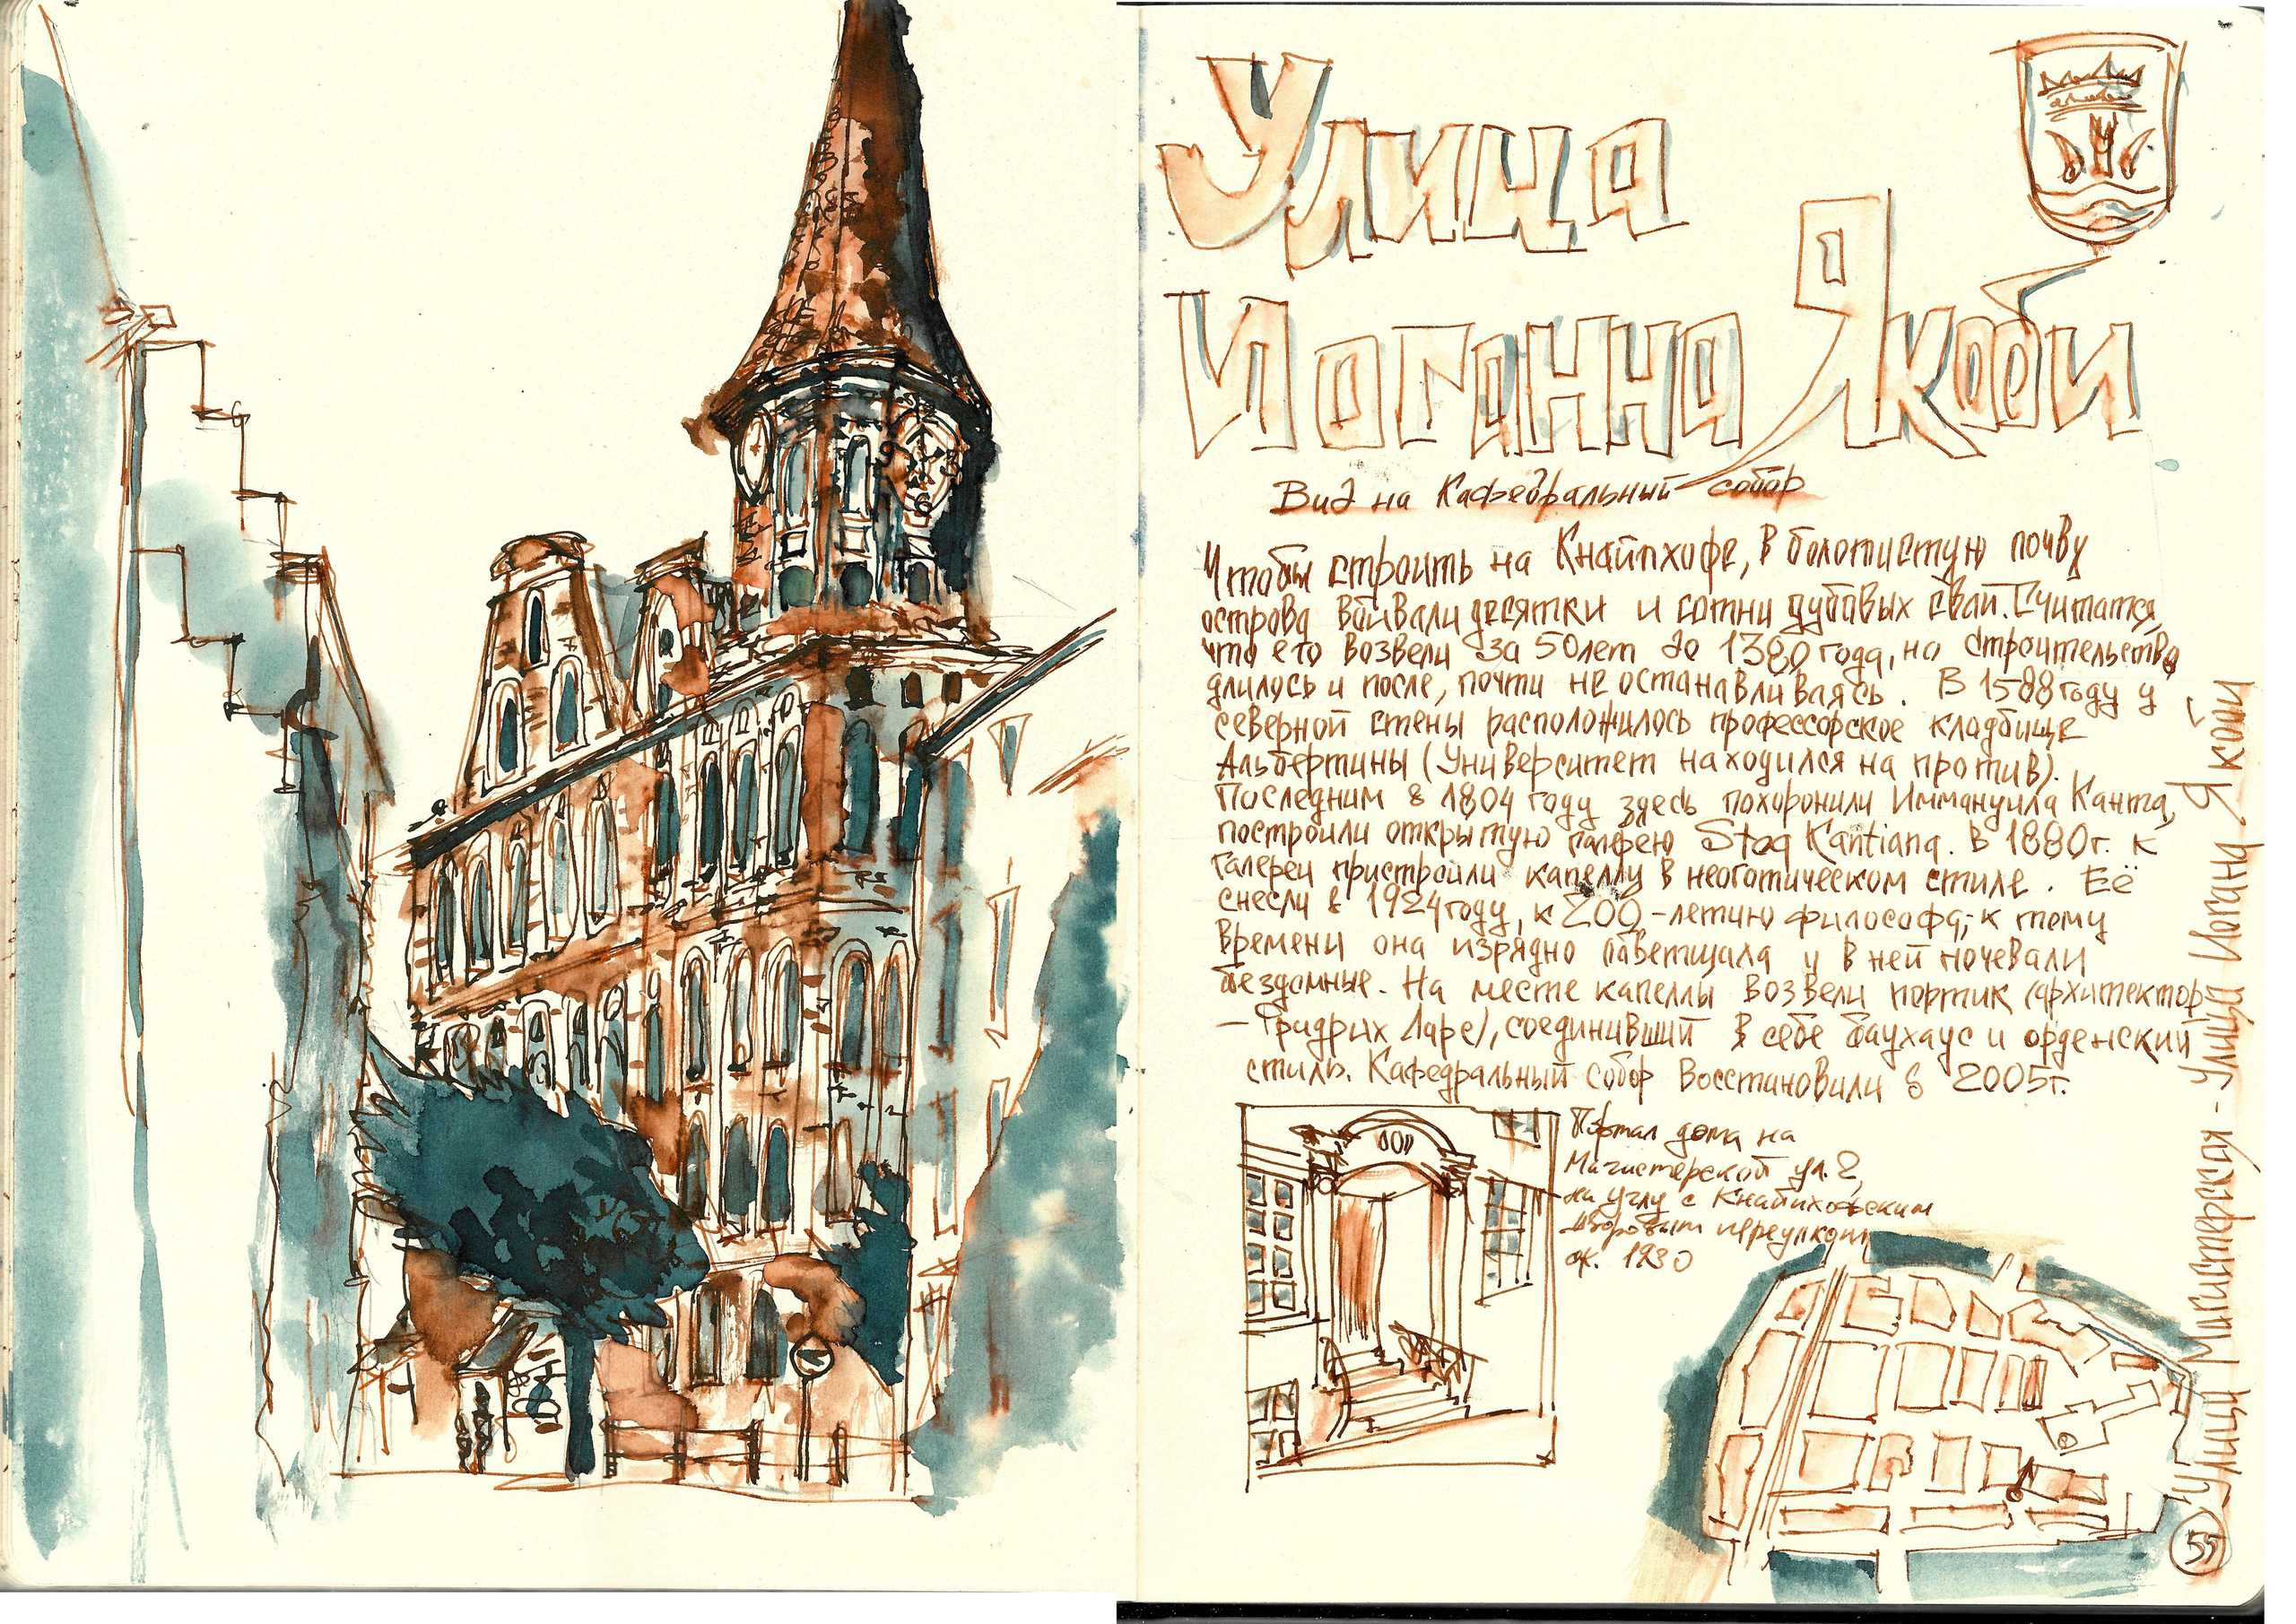 Улица
Иоганна Якоби
Вид на Кафедральный собор
Чтобы строить на Кнайпхофе, в болотистую почву
острова вбивали десятки и сотни дубовых свай. Считатся,
что его возвели за 50 лет до 1380 года, но строительство
длилось и после, почти не останавливаясь. В 1588 году у
северной стены расположилось профессорское кладбище
Альбертины (Университет находился на против).
Последним в 1804 году здесь похоронили Иммануила Канта,
построили открытую галерею Stoa Kantiana. В 1880г. к
галереи пристроили капеллу в неоготическом стиле. Её
снесли в 1924 году, к 200-летию философа; к тому
времени она изрядно обветшала и в ней ночевали
бездомные. На месте капеллы возвели портик (архитектор
- Фридрих Ларс), соединивший в себе баухаус и орденский
стиль. Кафедральный собор восстановили в 2005г.
Портал дома на
Магистерской ул. 2,
на углу с Кнайпхофским
дворовым переулком
ок. 1930
Улица Магистерская - Улица Иогана Якоби
55